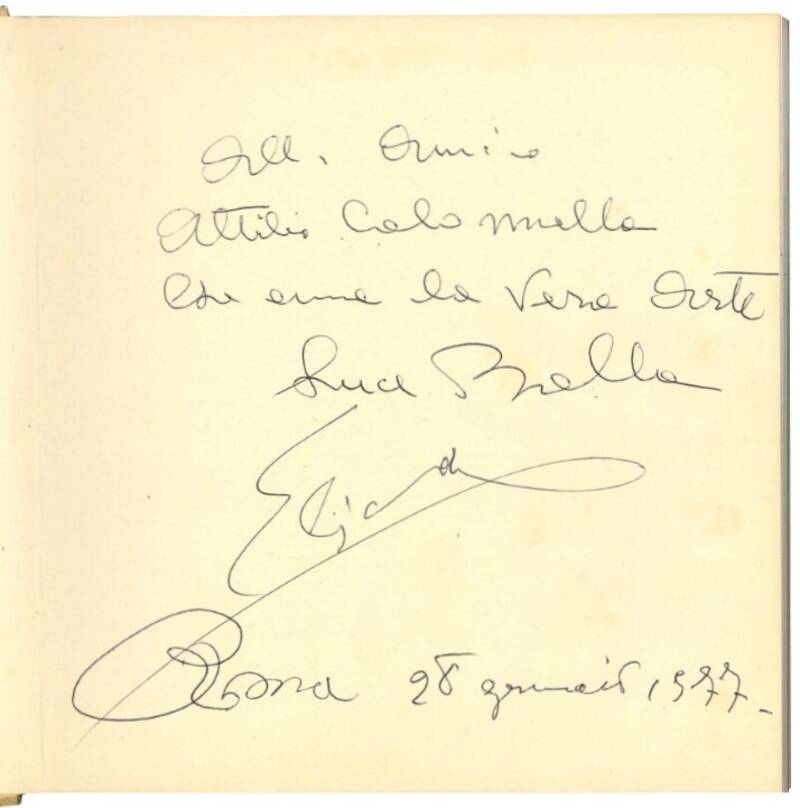 All. Amico
Attilio Colomella
Che ama la Vera Arte
Luce Balla
Elica
Roma 28 gennaio 1977.